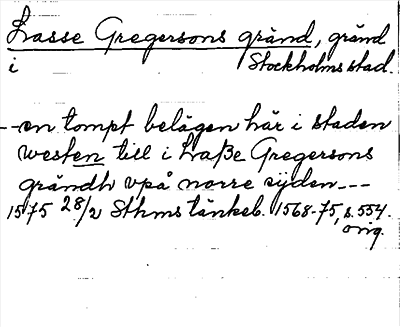 Lasse Gregersons gränd, gränd
i Stockholms stad.
--en tompt belägen här i staden
westen till i Laße Gregersons
grändh vpå norre sijden---
1575 28/2 Sthms tänkeb. 1568-75, s. 554.
orig.